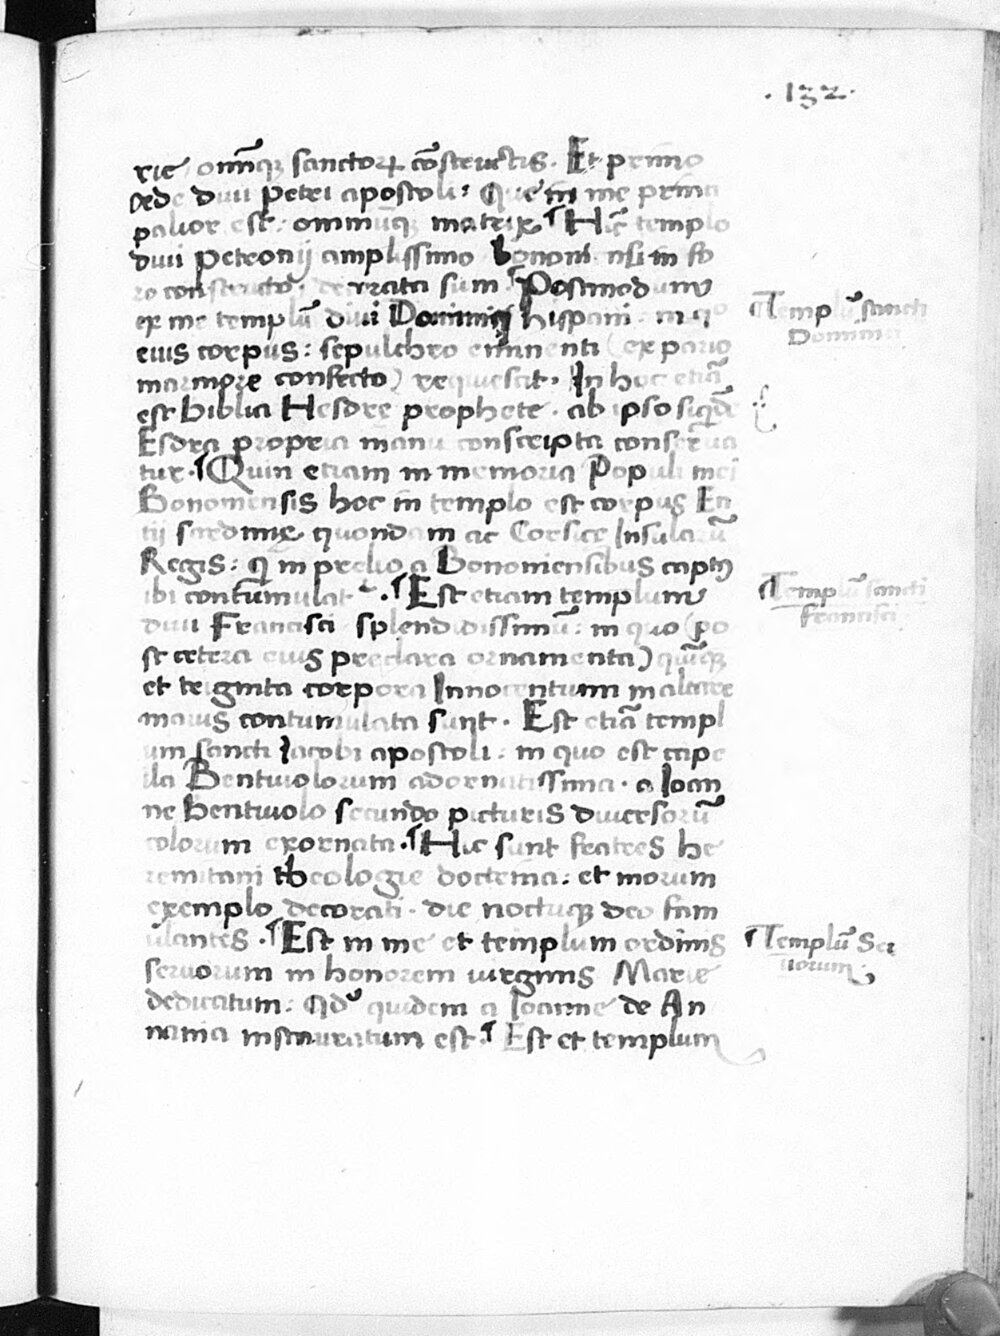 · 132 ·
rie / omniūq; sanctorꝝ cōstructis. Et primo
Aede diui Petri apostoli: Que in me prin
palior est: omniūq; matrix ¶ Hic templo
diui Petronij amplissimo bononiensi in fo
ro constructo: decorata sum. ¶ Postmodum
ex me templū diui Dominici hispani: in quo
eius corpus: sepulchro eminenti (ex pario
marmore confecto) requiescit. In hoc etiā
est biblia Hesdre prophete. ab ipso siqdē
Esdra propria manu conscripta conserua
tur. ¶ Quin etiam in memoria Populi mei
Bononiensis hoc in templo est corpus En
tij sardinie quondam ac Corsice Insularū
Regis: q in prelio a Bononiensibus captꝰ
ibi contūmulat~. ¶ Est etiam templum
diui Francisci splendidissimū: in quo (po
st cetera eius preclara ornamenta) quīq;
et triginta corpora Innocentum in altare
maius contumulata sunt. Est etiā templ
um sancti Iacobi apostoli: in quo est cape
lla Bentiuolorum adornatissima. a Ioan
ne bentiuolo secundo picturis diuersorū
colorum exornata. ¶ Hic sunt fratres he
remitani theologie doctrina: et morum
exemplo decorati. die noctuq; deo fam
ulantes. ¶ Est in me et templum ordinis
seruorum in honorem uirginis Marie
dedicatum: Qd quidem a Ioanne de An
nania instauratum est. ¶ Est et templum
¶ Templū sancti
Dominici
¶ Templū sancti
Francisci
¶ Templū Ser
uorum